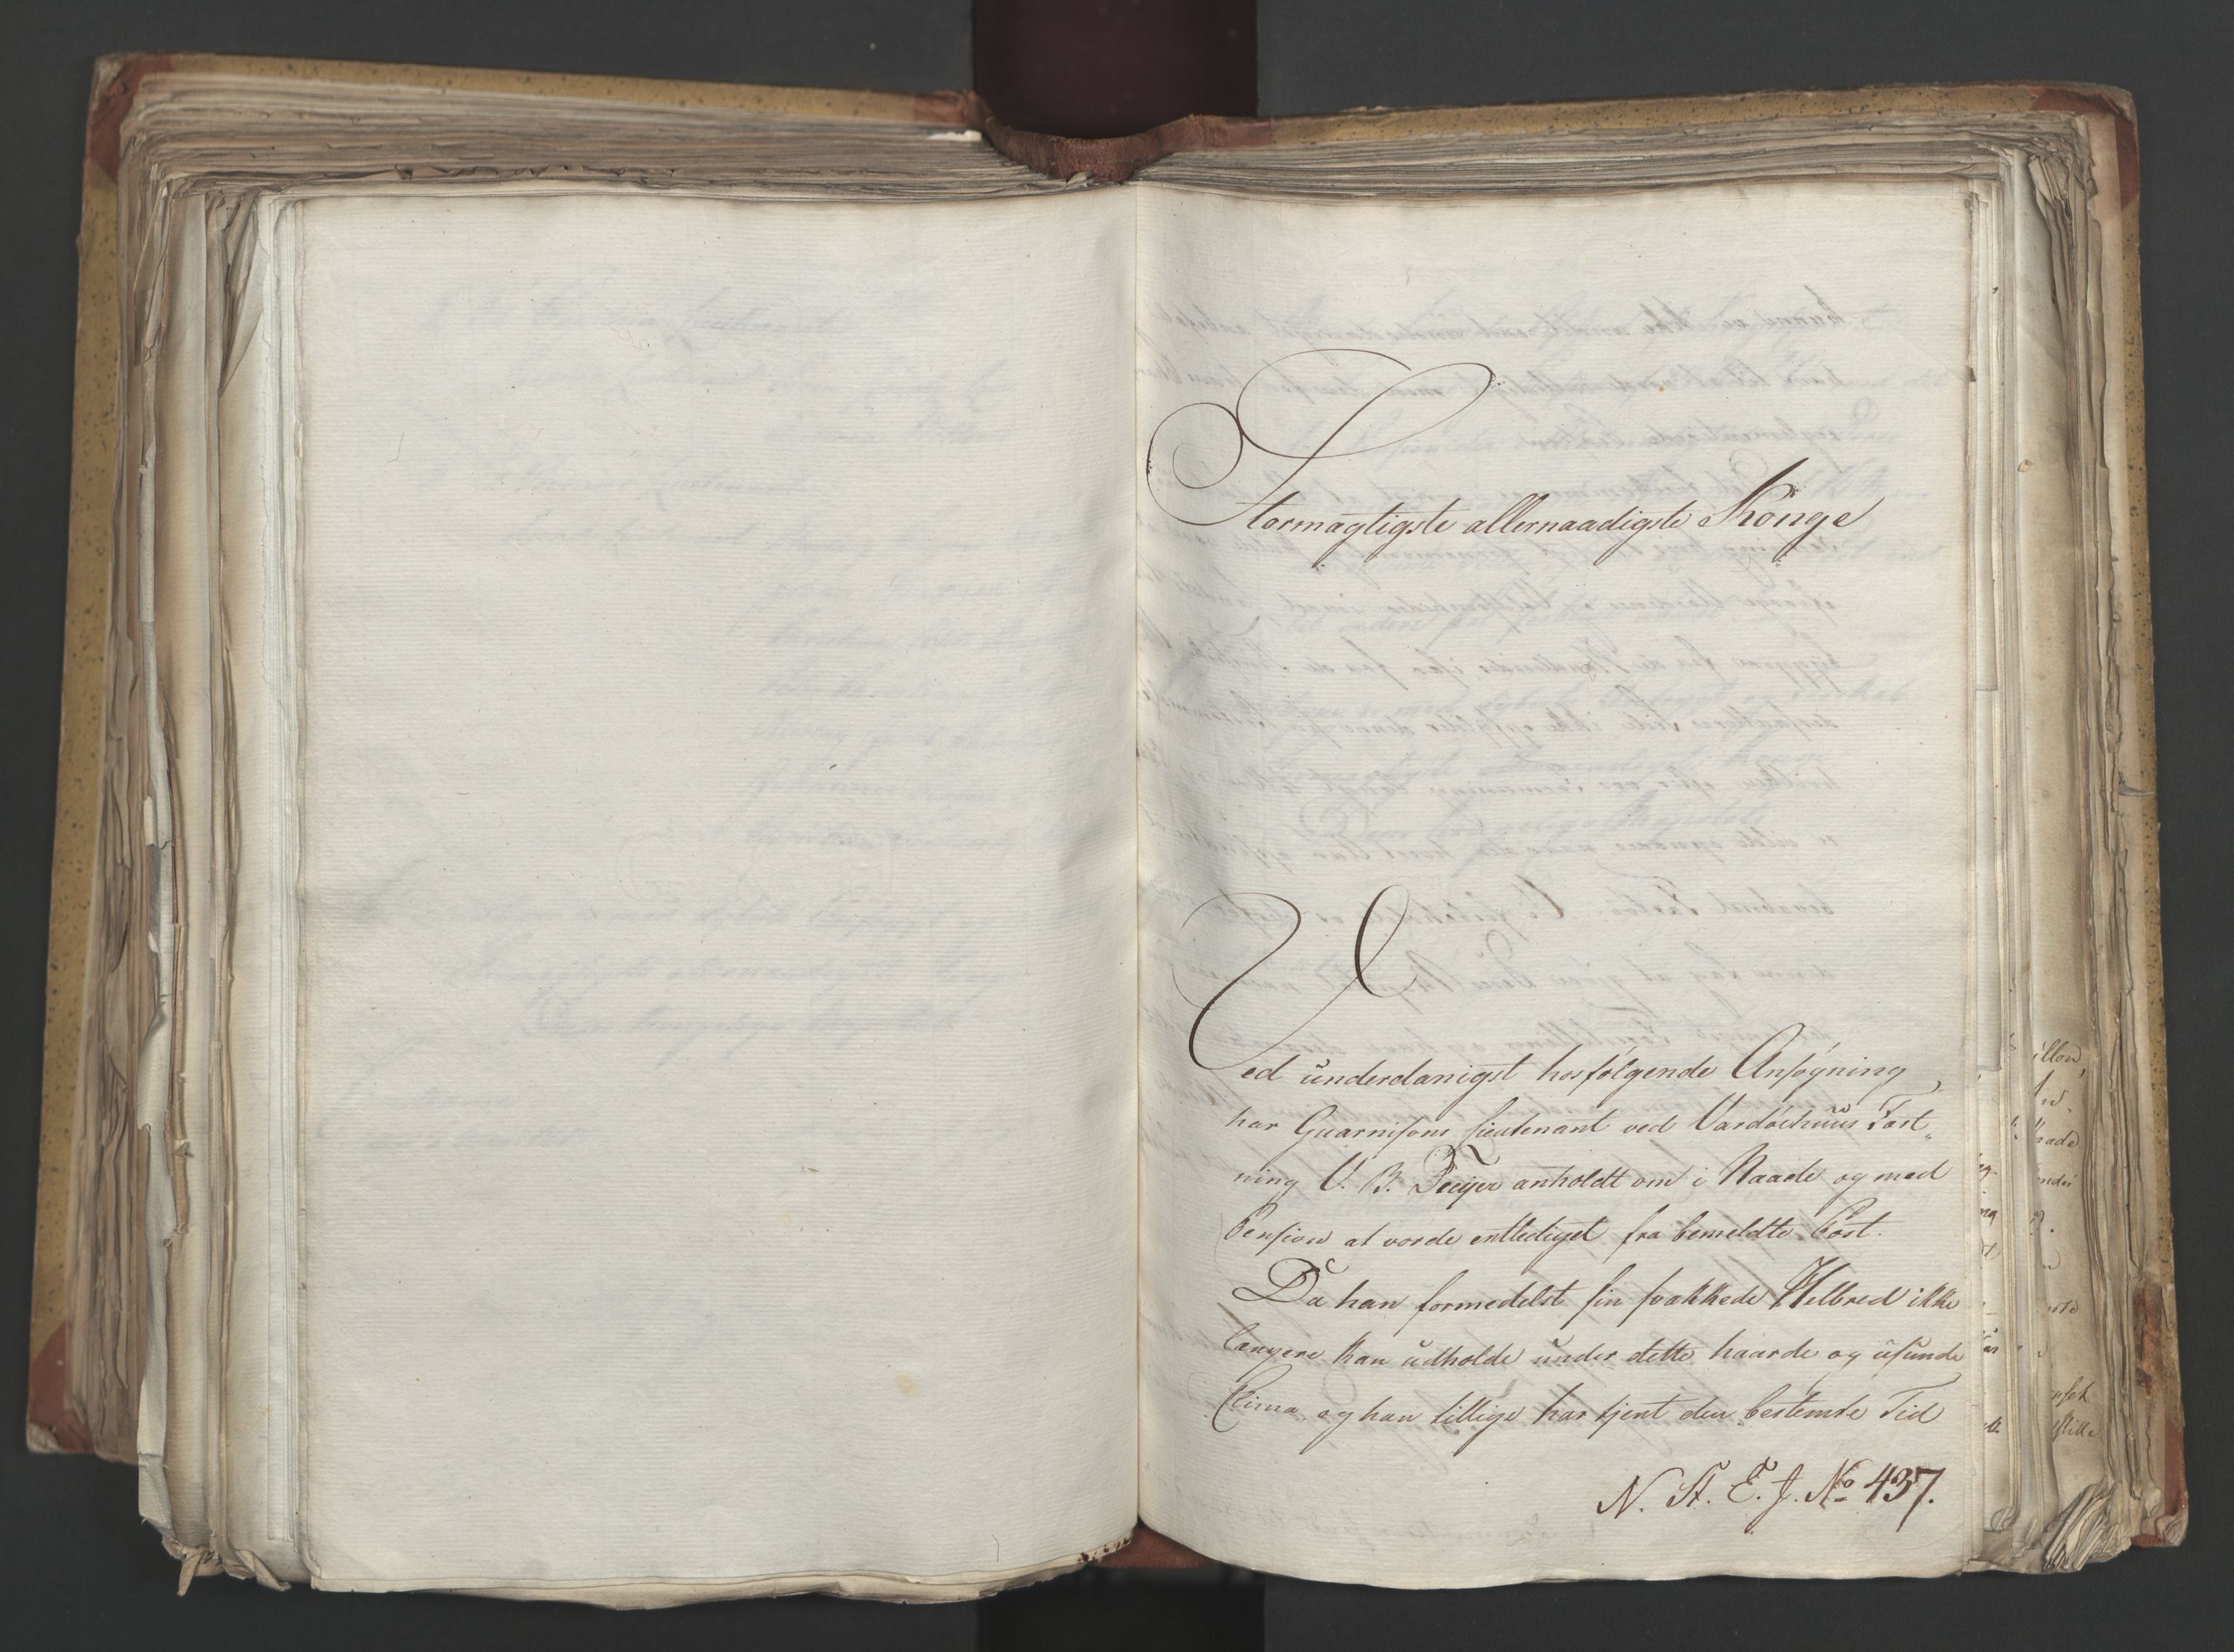 Stormægtigste allernaadigste Konge
Ved underdanigst hosfølgende Ansøgning
har Guarnisons Lieutenant ved Vardöehuus Fæst„
ning U. B. anholdt om i Naade og med
Pension at vorde entlediget fra bemeldte Post.
Da han formedelst sin svækkede Helbred ikke
længere kan udholde under dette haarde og usunde
Clima, og han tillige har tjent den bestemte Tid
N. St. E. J. No 437.